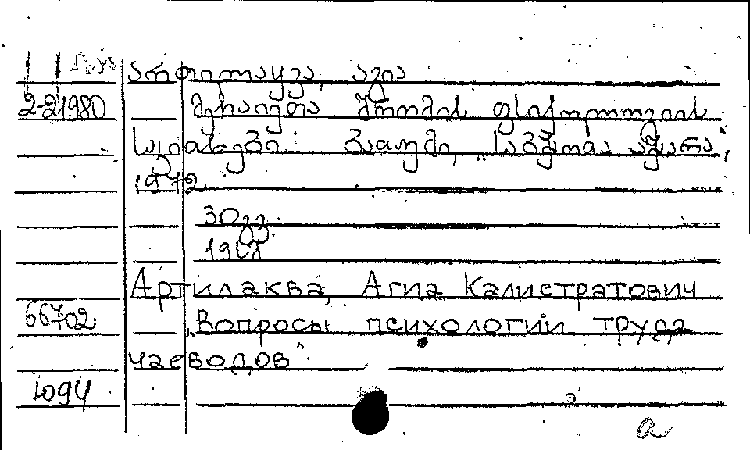 ართილაყვა, აგია
2-21980 მეჩაიეთა შრომის ფსიქოლოგიის
საკითხები. ბათუმი, საბჭოთა აჭარა,
1972
30 გვ.
Артилаква, Агиа Калистратович
66702 "Вопросы психологии труда
чаеводов"
1094
a